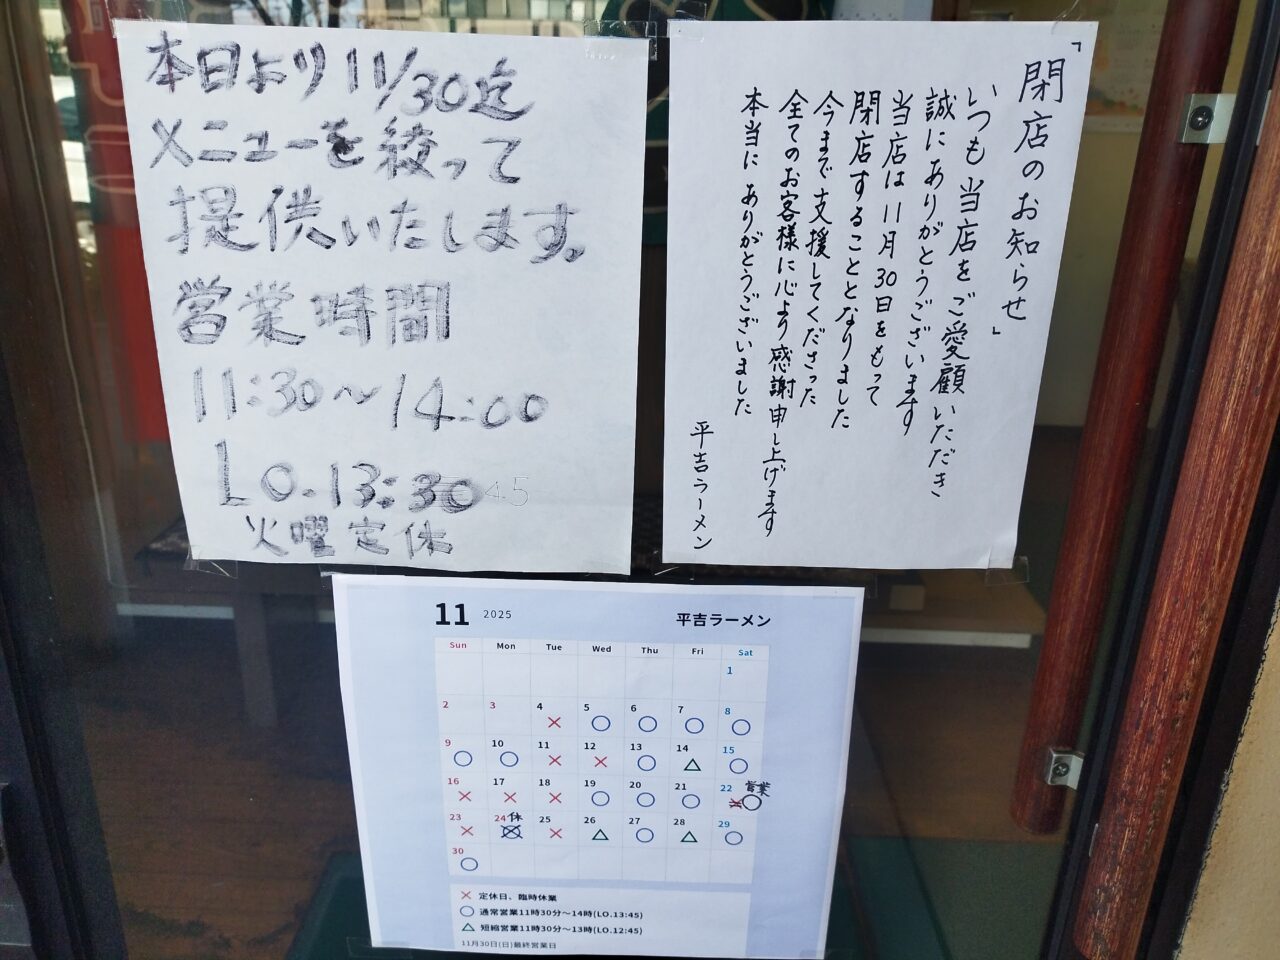 本日より11/30迄
メニューを絞って
提供いたします。
営業時間
11:30～14:00
LO.13:30 45
火曜定休
「閉店のお知らせ」
いつも当店をご愛顧いただき
誠にありがとうございます
当店は11月30日をもって
閉店することとなりました
今まで支援してくださった
全てのお客様に心より感謝申し上げます
本当にありがとうございました
平吉ラーメン
11 2025 平吉ラーメン
Sun Mon Tue Wed Thu Fri Sat
1
2 3 4 5 6 7 8
× ○ ○ ○ ○
9 10 11 12 13 14 15
○ ○ × × ○ △ ○
16 17 18 19 20 21 22 営業
× × × ○ ○ ○ × ○
23 24 休 25 26 27 28 29
× ○ × △ ○ △ ○
30
○
× 定休日、臨時休業
○ 通常営業11時30分～14時(LO.13:45)
△ 短縮営業11時30分～13時(LO.12:45)
11月30日(日)最終営業日